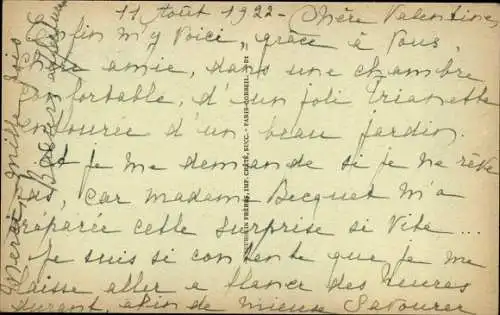 11 Août 1922 - Chère Valentine,
Enfin m'y voici, grâce à vous,
chère amie, dans une chambre
confortable, d'un joli Trianette
entourée d'un beau jardin.
Et je me demande si je ne rêve
pas, car madame Becquet m'a
préparée cette surprise si vite...
Je suis si contente que je me
laisse aller a flaner des heures
durant, afin de mieux savourer
Merci mille fois
Bons baisers
FRÈRES, IMP. CRÉTÉ, SUCC. - PARIS-CORBEIL